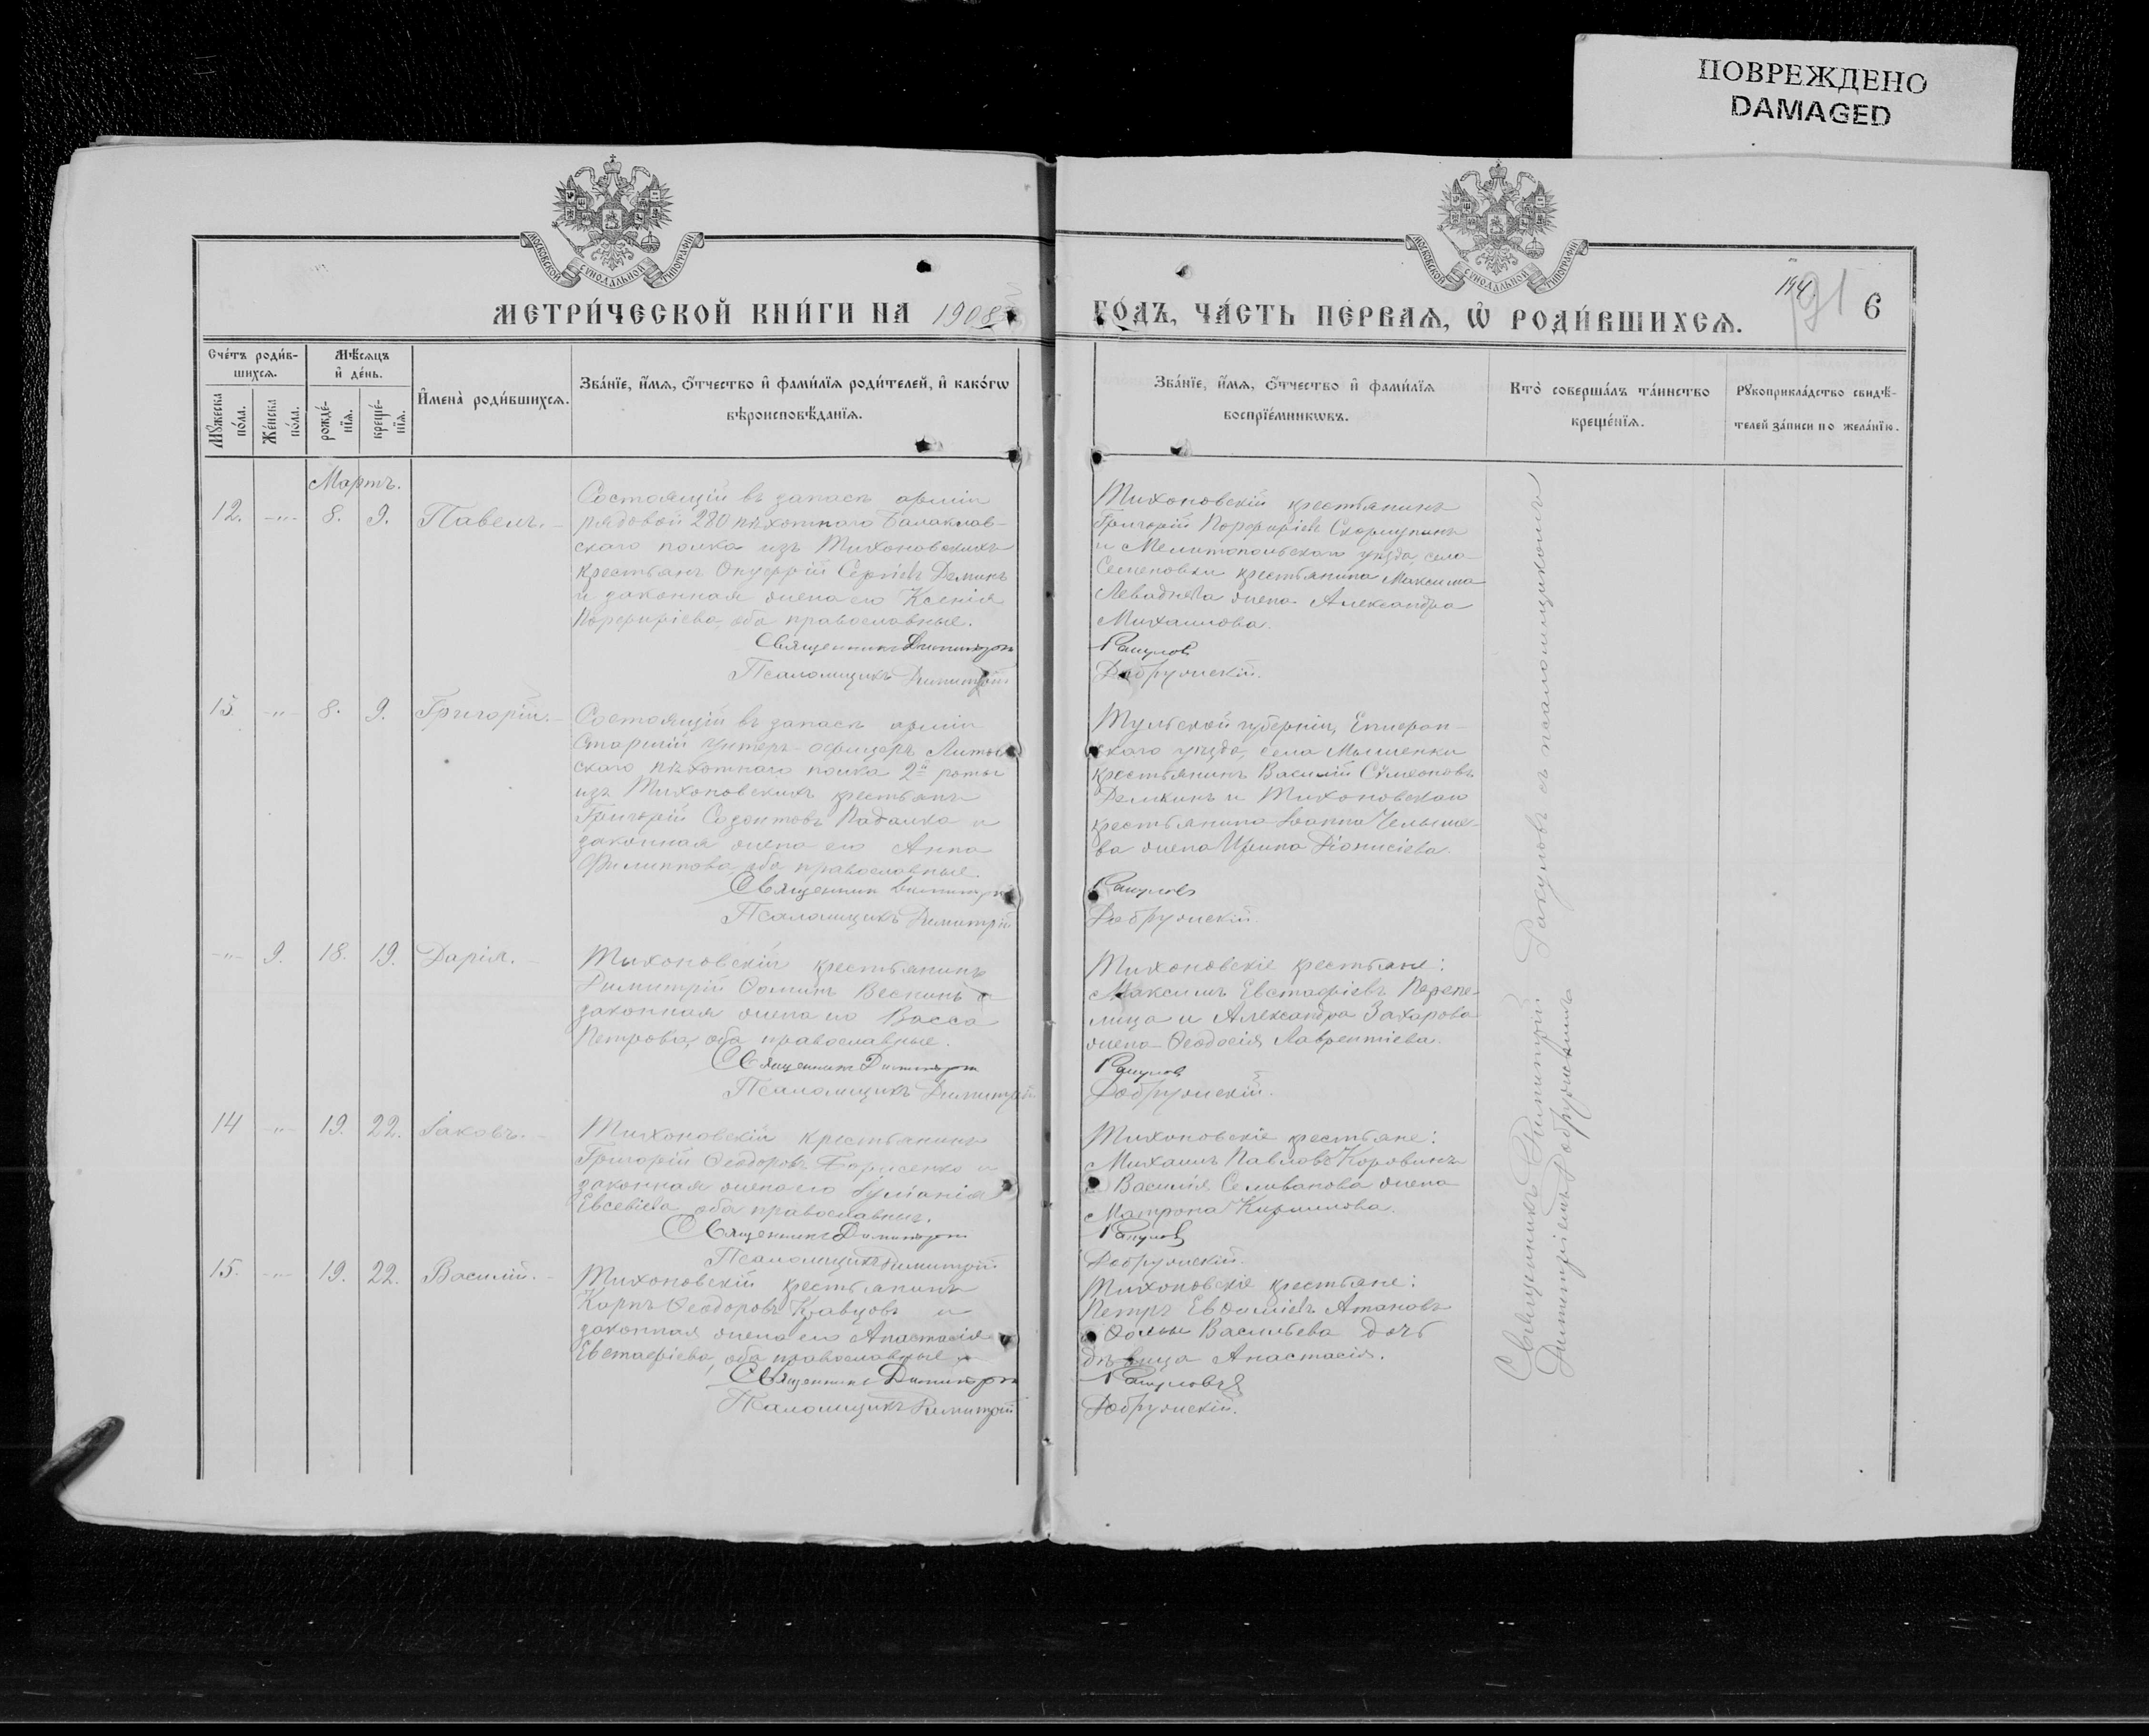 ПОВРЕЖДЕНО
DAMAGED
МОСКОВСКОЙ СѴНОДАЛЬНОЙ ТИПОГРАФІИ
МОСКОВСКОЙ СѴНОДАЛЬНОЙ ТИПОГРАФІИ
МЕТРИ́ЧЕСКОЙ КНИ́ГИ НА 1908
ГО́ДЪ, ЧА́СТЬ ПЕ́РВАѦ, Ѡ҆ РОДИ́ВШИХСѦ.
194
91
6
Сче́тъ роди́в-
шихсѧ.
Мꙋ́жеска по́ла.
Же́нска по́ла.
Мѣ́сѧцъ
и҆ де́нь.
рожде́-
нїѧ.
креще́-
нїѧ.
И҆мена̀ роди́вшихсѧ.
Зва́нїе, и҆́мѧ, ѻ҆́тчество и҆ фами́лїѧ роди́телей, и҆ како́гѡ
вѣроисповѣ́данїѧ.
Зва́нїе, и҆́мѧ, ѻ҆́тчество и҆ фами́лїѧ
воспрїе́мникѡвъ.
Кто̀ соверша́лъ та́инство
креще́нїѧ.
Рꙋкоприкла́дство свидѣ́-
телей за́писи по жела́нїю.
Мартъ.
12. -"- 8. 9. Павелъ.
Состоящій въ запасѣ арміи
рядовой 280 пѣхотнаго Балаклав-
скаго полка изъ Тихоновскихъ
крестьянъ Онуфрій Сергіевъ Деминъ
и законная жена его Ксенія
Порфиріева, оба православные.
Священникъ Димитрій
Псаломщикъ Димитрій
Тихоновскій крестьянинъ
Григорій Порфиріевъ
и Мелитопольскаго уѣзда, села
Семеновки крестьянина Максима
Леваднева жена Александра
Михаилова.
Ракуловъ
Добружскій.
13 -"- 8. 9. Григорій.
Состоящій въ запасѣ арміи
Старшій унтеръ-офицеръ Литов-
скаго пѣхотнаго полка 2й роты
изъ Тихоновскихъ крестьянъ
Григорій Созонтовъ Падалка и
законная жена его Анна
Филиппова, оба православные.
Священникъ Димитрій
Псаломщикъ Димитрій
Тульской губерніи, Епифан-
скаго уѣзда, села Мышенки
крестьянинъ Василій Сѵмеоновъ
и Тихоновскаго
крестьянина Іоанна Челыше-
ва жена Ирина Діонисіева.
Ракуловъ
Добружскій.
-"- 9. 18. 19. Дарія.
Тихоновскій крестьянинъ
Димитрій Ѳоминъ Веснинъ и
законная жена его Васса
Петрова, оба православные.
Священникъ Димитрій
Псаломщикъ Димитрій
Тихоновскіе крестьяне:
Максимъ Евстафіевъ Перепе-
лица и Александра Захарова
жена Ѳеодосія Лаврентіева.
Ракуловъ
Добружскій.
14 -"- 19. 22. Іаковъ.
Тихоновскій крестьянинъ
Григорій Ѳеодоровъ Борисенко и
законная жена его Іуліанія
Евсевіева, оба православные.
Священникъ Димитрій
Псаломщикъ Димитрій
Тихоновскіе крестьяне:
Михаилъ Павловъ Коровинъ
и Василія Селиванова жена
Матрона Кириллова.
Ракуловъ
Добружскій.
15. -"- 19. 22. Василій.
Тихоновскій крестьянинъ
Карпъ Ѳеодоровъ Кравцовъ и
законная жена его Анастасія
Евстафіева, оба православные
Священникъ Димитрій
Псаломщикъ Димитрій
Тихоновскіе крестьяне:
Петръ Евѳиміевъ Атановъ
и Ѳомы Васильева дочь
дѣвица Анастасія.
Ракуловъ
Добружскій.
Священникъ Димитрій Ракуловъ съ псаломщикомъ
Димитріемъ Добружскимъ